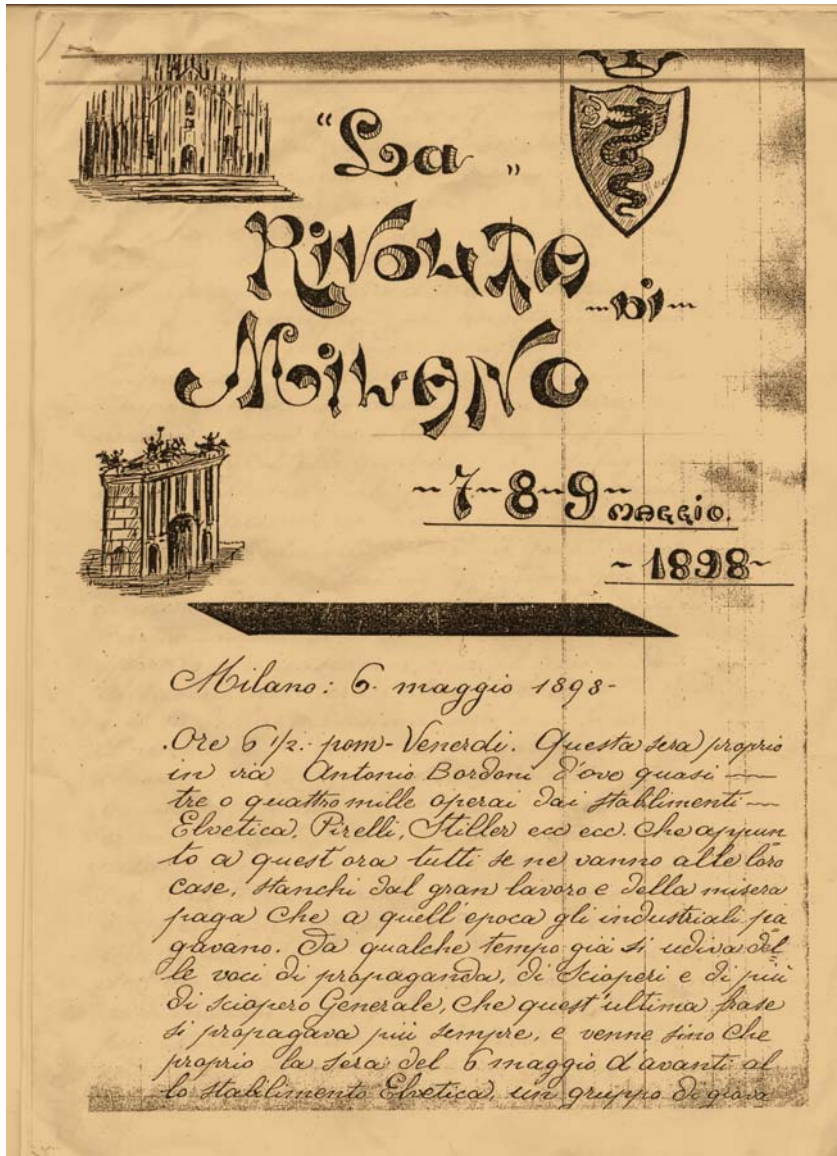 "La"
RIVOLTA
DI
MILANO
7-8-9 MAGGIO.
1898
Milano: 6. maggio 1898-
Ore 6 1/2. pom- Venerdi. Questa sera proprio
in via Antonio Bordoni d'ove quasi
tre o quattro mille operai dai stablimenti
Elvetica, Pirelli, Stiller ecc ecc. che appun
to a quest'ora tutti se ne vanno alle loro
case, stanchi dal gran lavoro e della misera
paga che a quell'epoca gli industriali pa
gavano. Da qualche tempo già si udiva del
le voci di propaganda, di Scioperi e di più
di sciopero Generale, che quest'ultima frase
si propagava più sempre, e venne sino che
proprio la sera del 6 maggio davanti al
lo stablimento Elvetica, un gruppo di giova